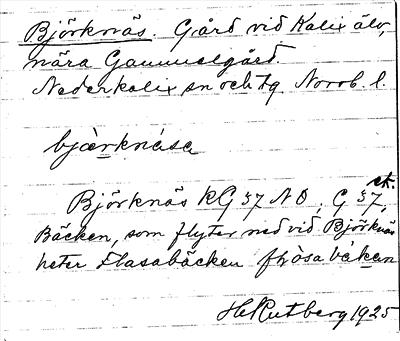 Björknäs. Gård vid Kalix älv,
nära Gammelgård.
Nederkalix sn och tg Norrb. l.
bjæ̀rknása
Björknäs RG 37 NO, G 37, ek.
Bäcken, som flyter ned vid Björknäs
heter Flasabäcken
H Rutberg 1925